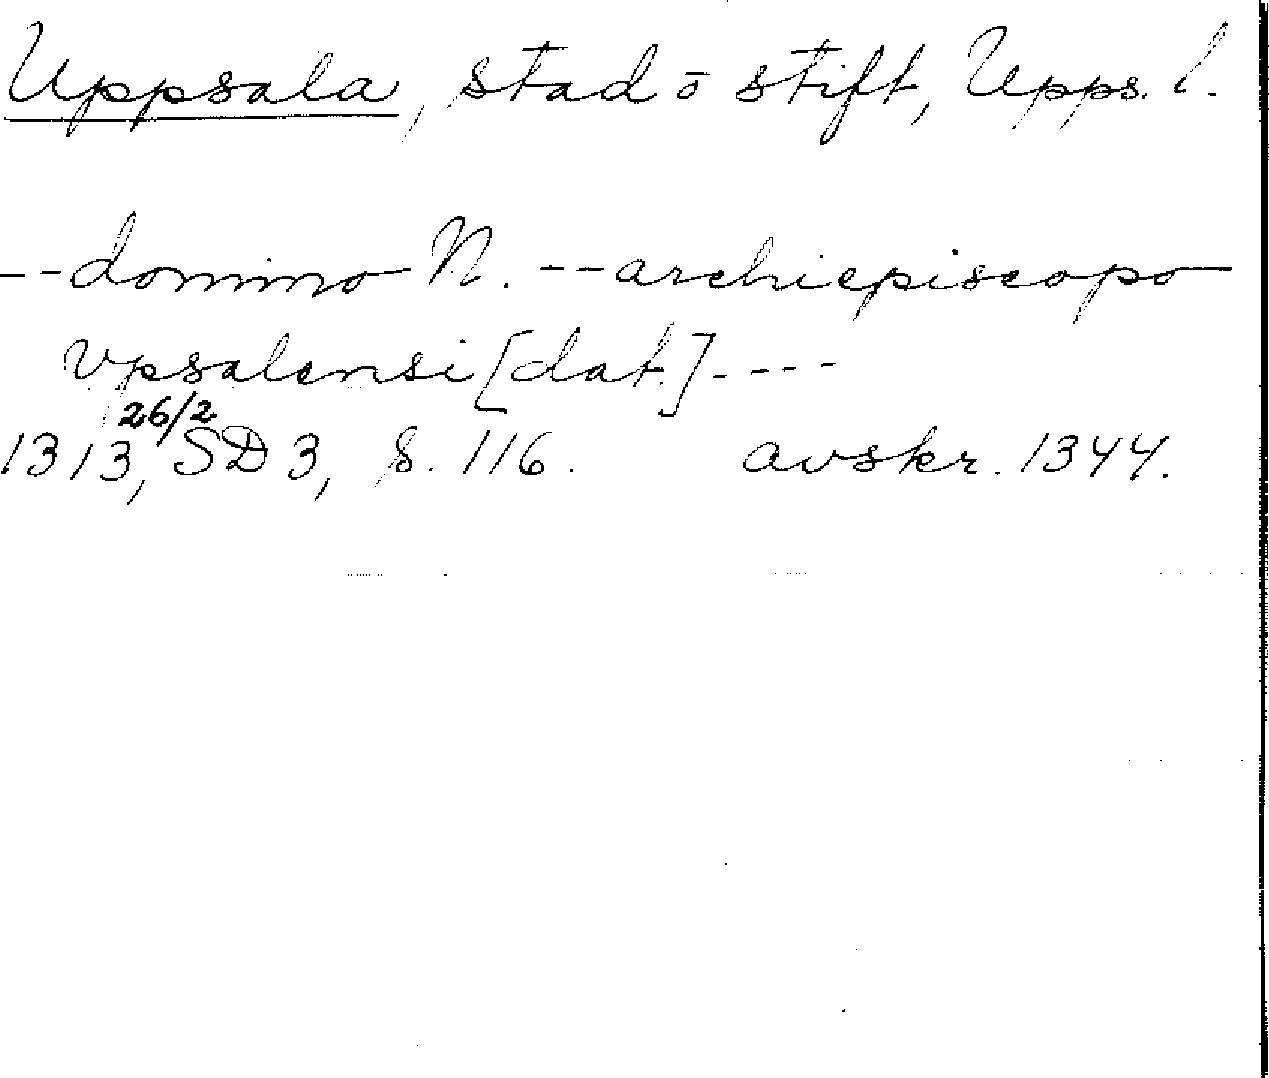 Uppsala, stad o stift, Upps. l.
--domino N. --archiepiscopo
vpsalensi [dat.]----
1313 26/2, SD 3, s. 116. avskr. 1344.